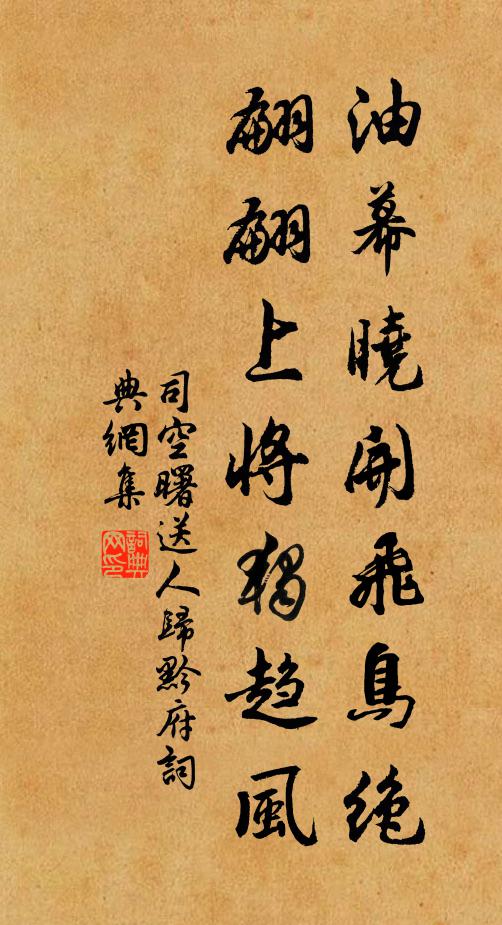 油幕曉開飛鳥絕
翩翩上將獨趨風
司空曙送人歸黔府詞
典網集
詞典
网印